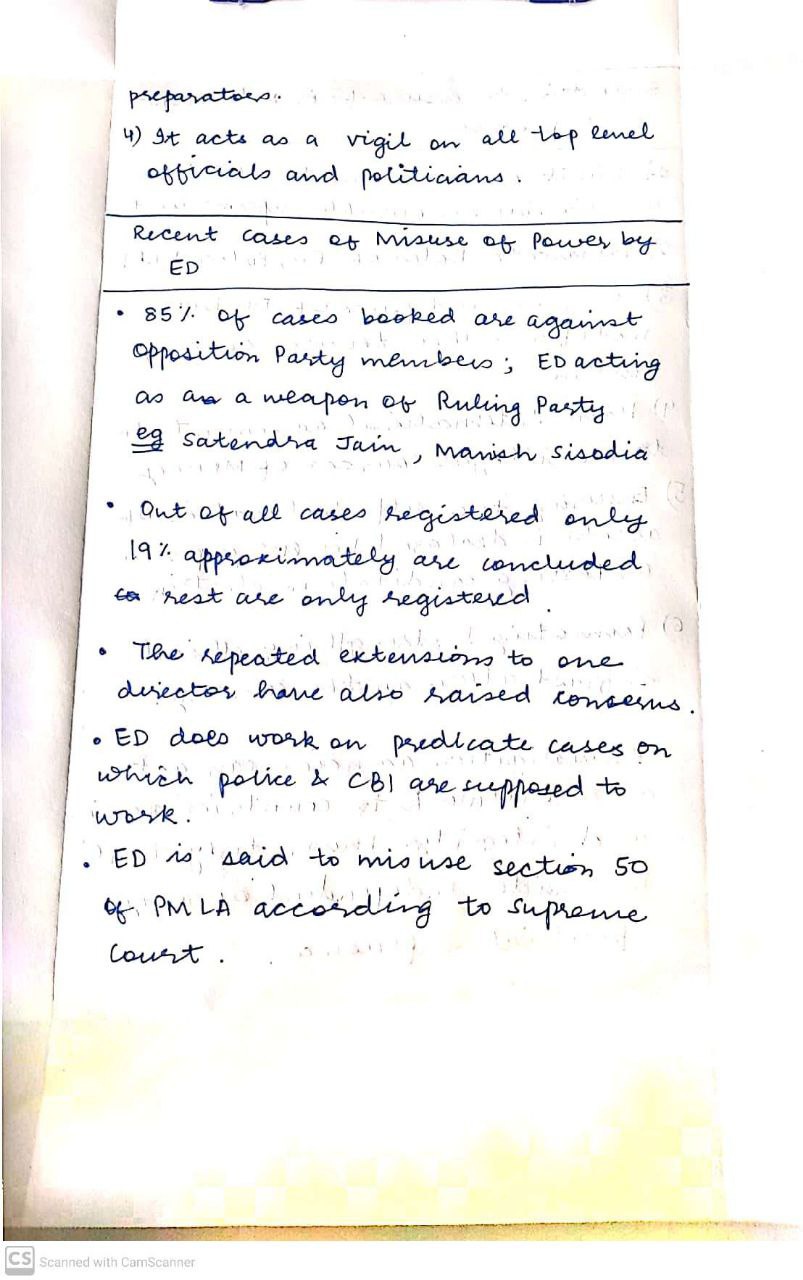 preparators.
4) It acts as a vigil on all top level
officials and politicians.
Recent cases of Misuse of Power by
ED
• 85% of cases booked are against
Opposition Party members; ED acting
as a weapon of Ruling Party
eg Satendra Jain, Manish Sisodia
• Out of all cases registered only
19% approximately are concluded
rest are only registered.
• The repeated extensions to one
director have also raised concerns.
• ED does work on predicate cases on
which police & CBI are supposed to
work.
• ED is said to misuse section 50
of PMLA according to Supreme
Court.
CS Scanned with CamScanner